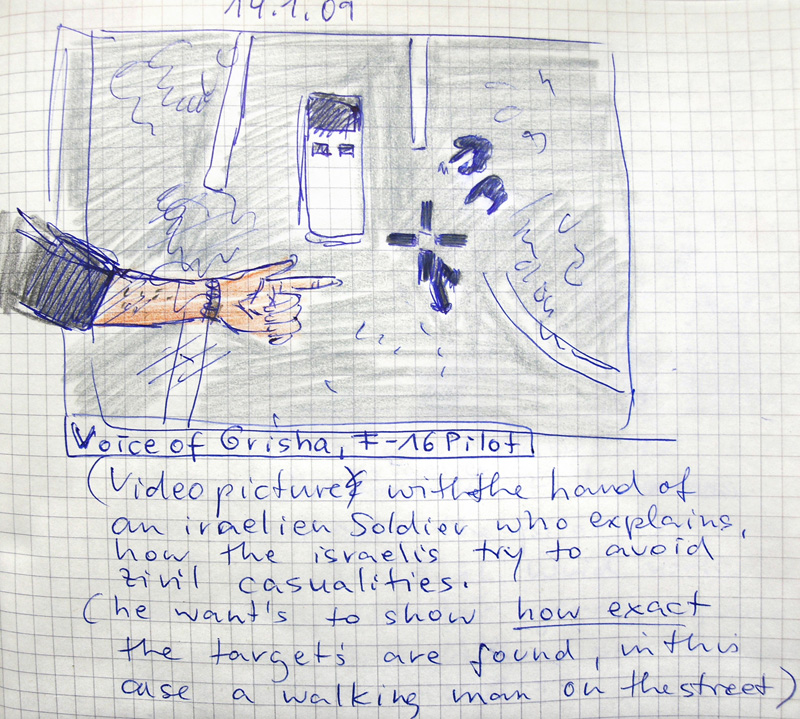 14.1.09
Voice of Grisha, F-16 Pilot
(Video picture with the hand of
an iraelien Soldier who explains,
how the israelis try to avoid
zivil casualities.
(he want's to show how exact
the targets are found, in this
case a walking man on the street)